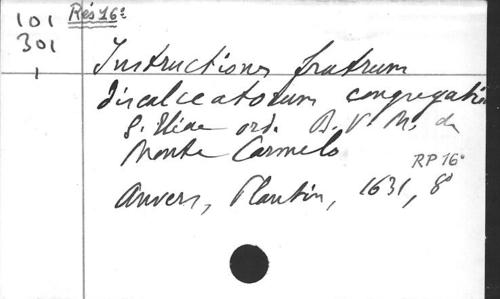 Rés 16º
101
301
1
Instructiones fratrum
discalceatorum congregatio
S. Eliae ord. B. V. M. de
Monte Carmelo
RP 16º
Anvers, Plantin, 1631, 8º